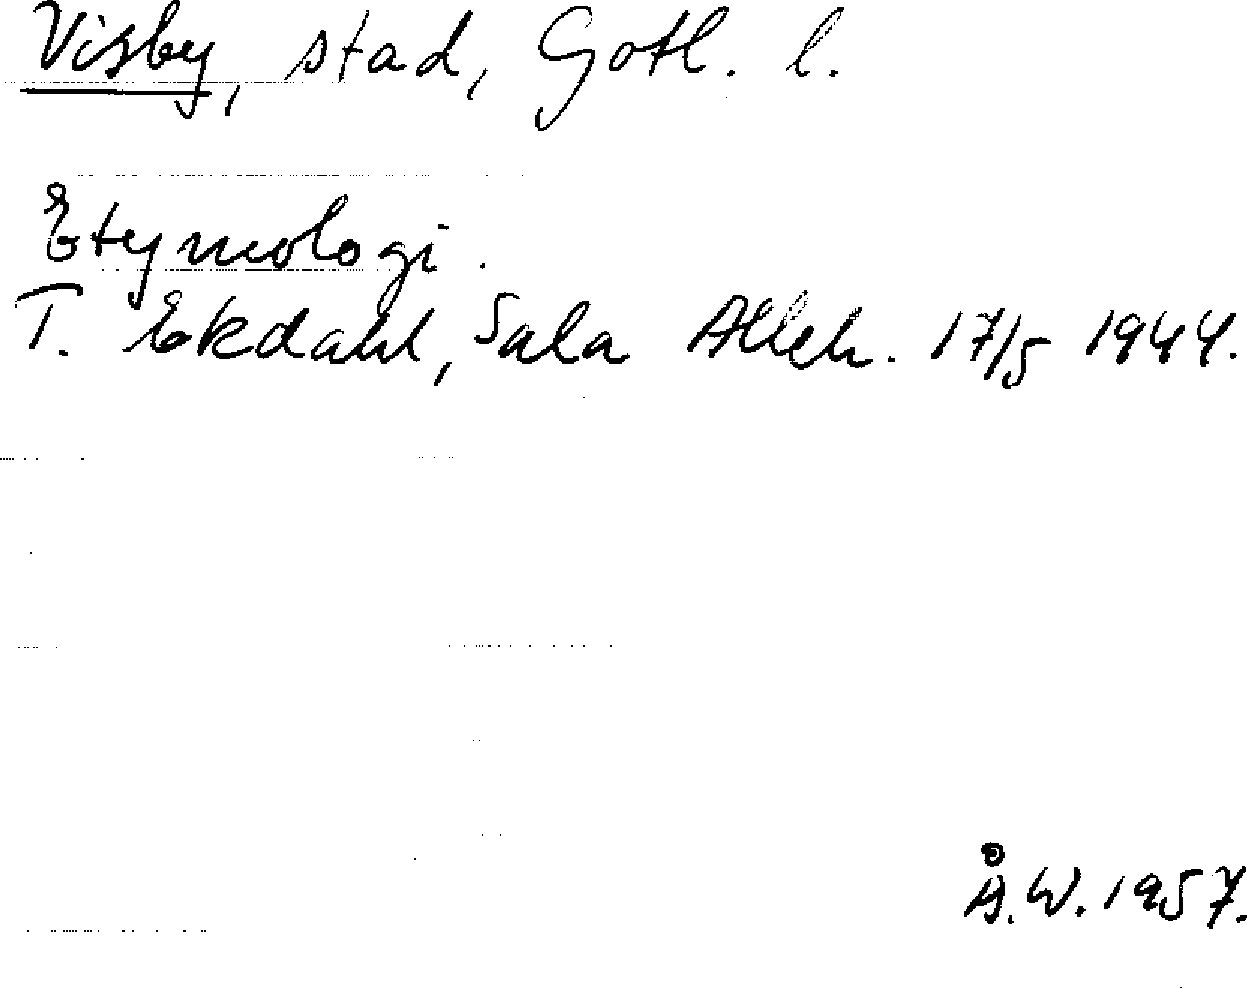 Visby, stad, Gotl. l.
Etymologi.
T. Ekdahl, Sala Alleh. 17/5 1944.
Å.W. 1957.